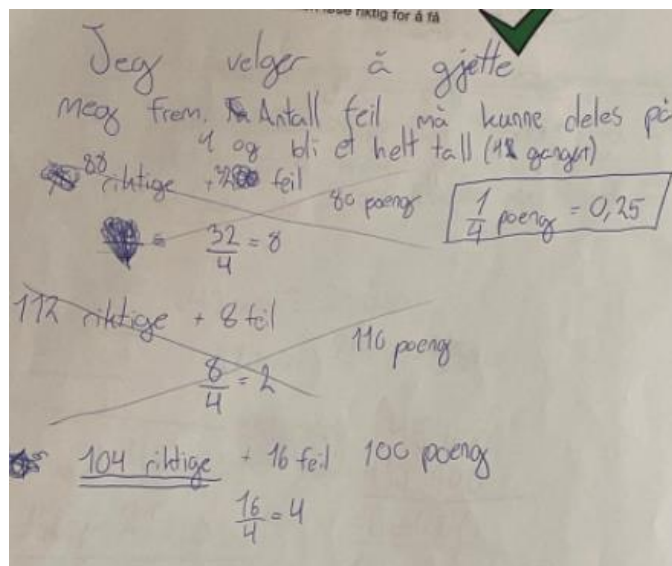 løse riktig for å få
Jeg velger å gjette
meg frem. Antall feil må kunne deles på
4 og bli et helt tall (ganger)
88 riktige + 32 feil
80 poeng
1/4 poeng = 0,25
32/4 = 8
112 riktige + 8 feil
110 poeng
8/4 = 2
104 riktige + 16 feil 100 poeng
16/4 = 4